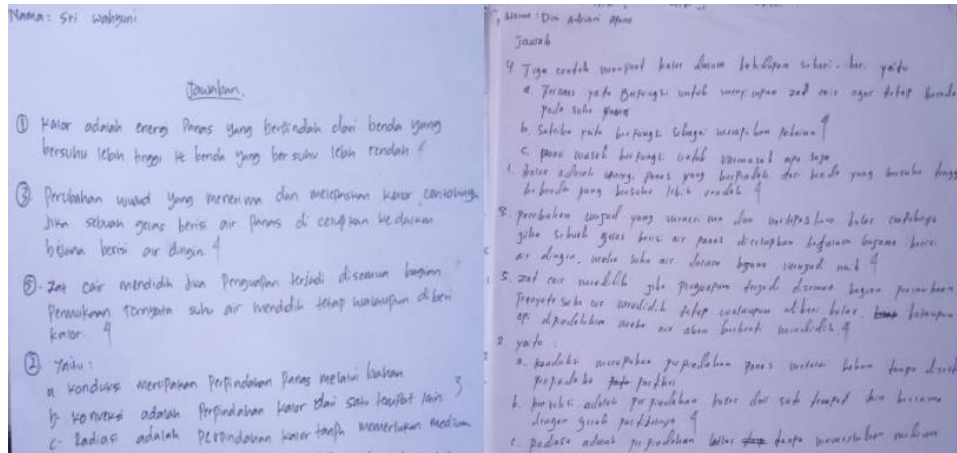 Nama: Sri Wahyuni
Jawaban.
① Kalor adalah energi Panas yang berpindah dari benda yang
bersuhu lebih tinggi ke benda yang bersuhu lebih rendah 4
③ Perubahan wujud yang menerima dan melepaskan kalor contohnya
Jika sebuah gelas berisi air Panas di celupkan kedalam
berisi air dingin 4
⑤. Zat cair mendidih Jika Penguapan terjadi disemua bagian
Permukaan Ternyata suhu air mendidih tetap walaupun diberi
kalor. 4
② Yaitu:
a. Konduksi merupakan Perpindahan Panas melalui bahan
b. Konveksi adalah Perpindahan Kalor dari satu tempat lain 3
c. Radiasi adalah Perpindahan Kalor tanpa memerlukan medium
Jawab
4. Tiga contoh manfaat kalor dalam kehidupan sehari-hari yaitu
a. Termos yaitu untuk zat cair agar tetap berada
pada suhu panas
b. Setrika yaitu berfungsi sebagai 4
c. panci masak berfungsi untuk memasak apa saja
1. Kalor adalah energi panas yang berpindah dari benda yang bersuhu tinggi
ke benda yang bersuhu lebih rendah 4
3. perubahan wujud yang menerima dan melepaskan kalor contohnya
jika sebuah gelas berisi air panas dicelupkan kedalam berisi
air dingin, maka suhu air dalam menjadi naik 4
5. zat cair mendidih jika penguapan terjadi disemua bagian permukaan
Ternyata suhu air mendidih tetap walaupun diberi kalor.
api dipindahkan maka air akan berhenti mendidih 4
2. yaitu:
a. konduksi merupakan perpindahan panas melalui bahan tanpa disertai
partikel
b. konveksi adalah perpindahan kalor dari satu tempat lain bersama
dengan gerak partikelnya 4
c. adalah perpindahan kalor tanpa memerlukan medium